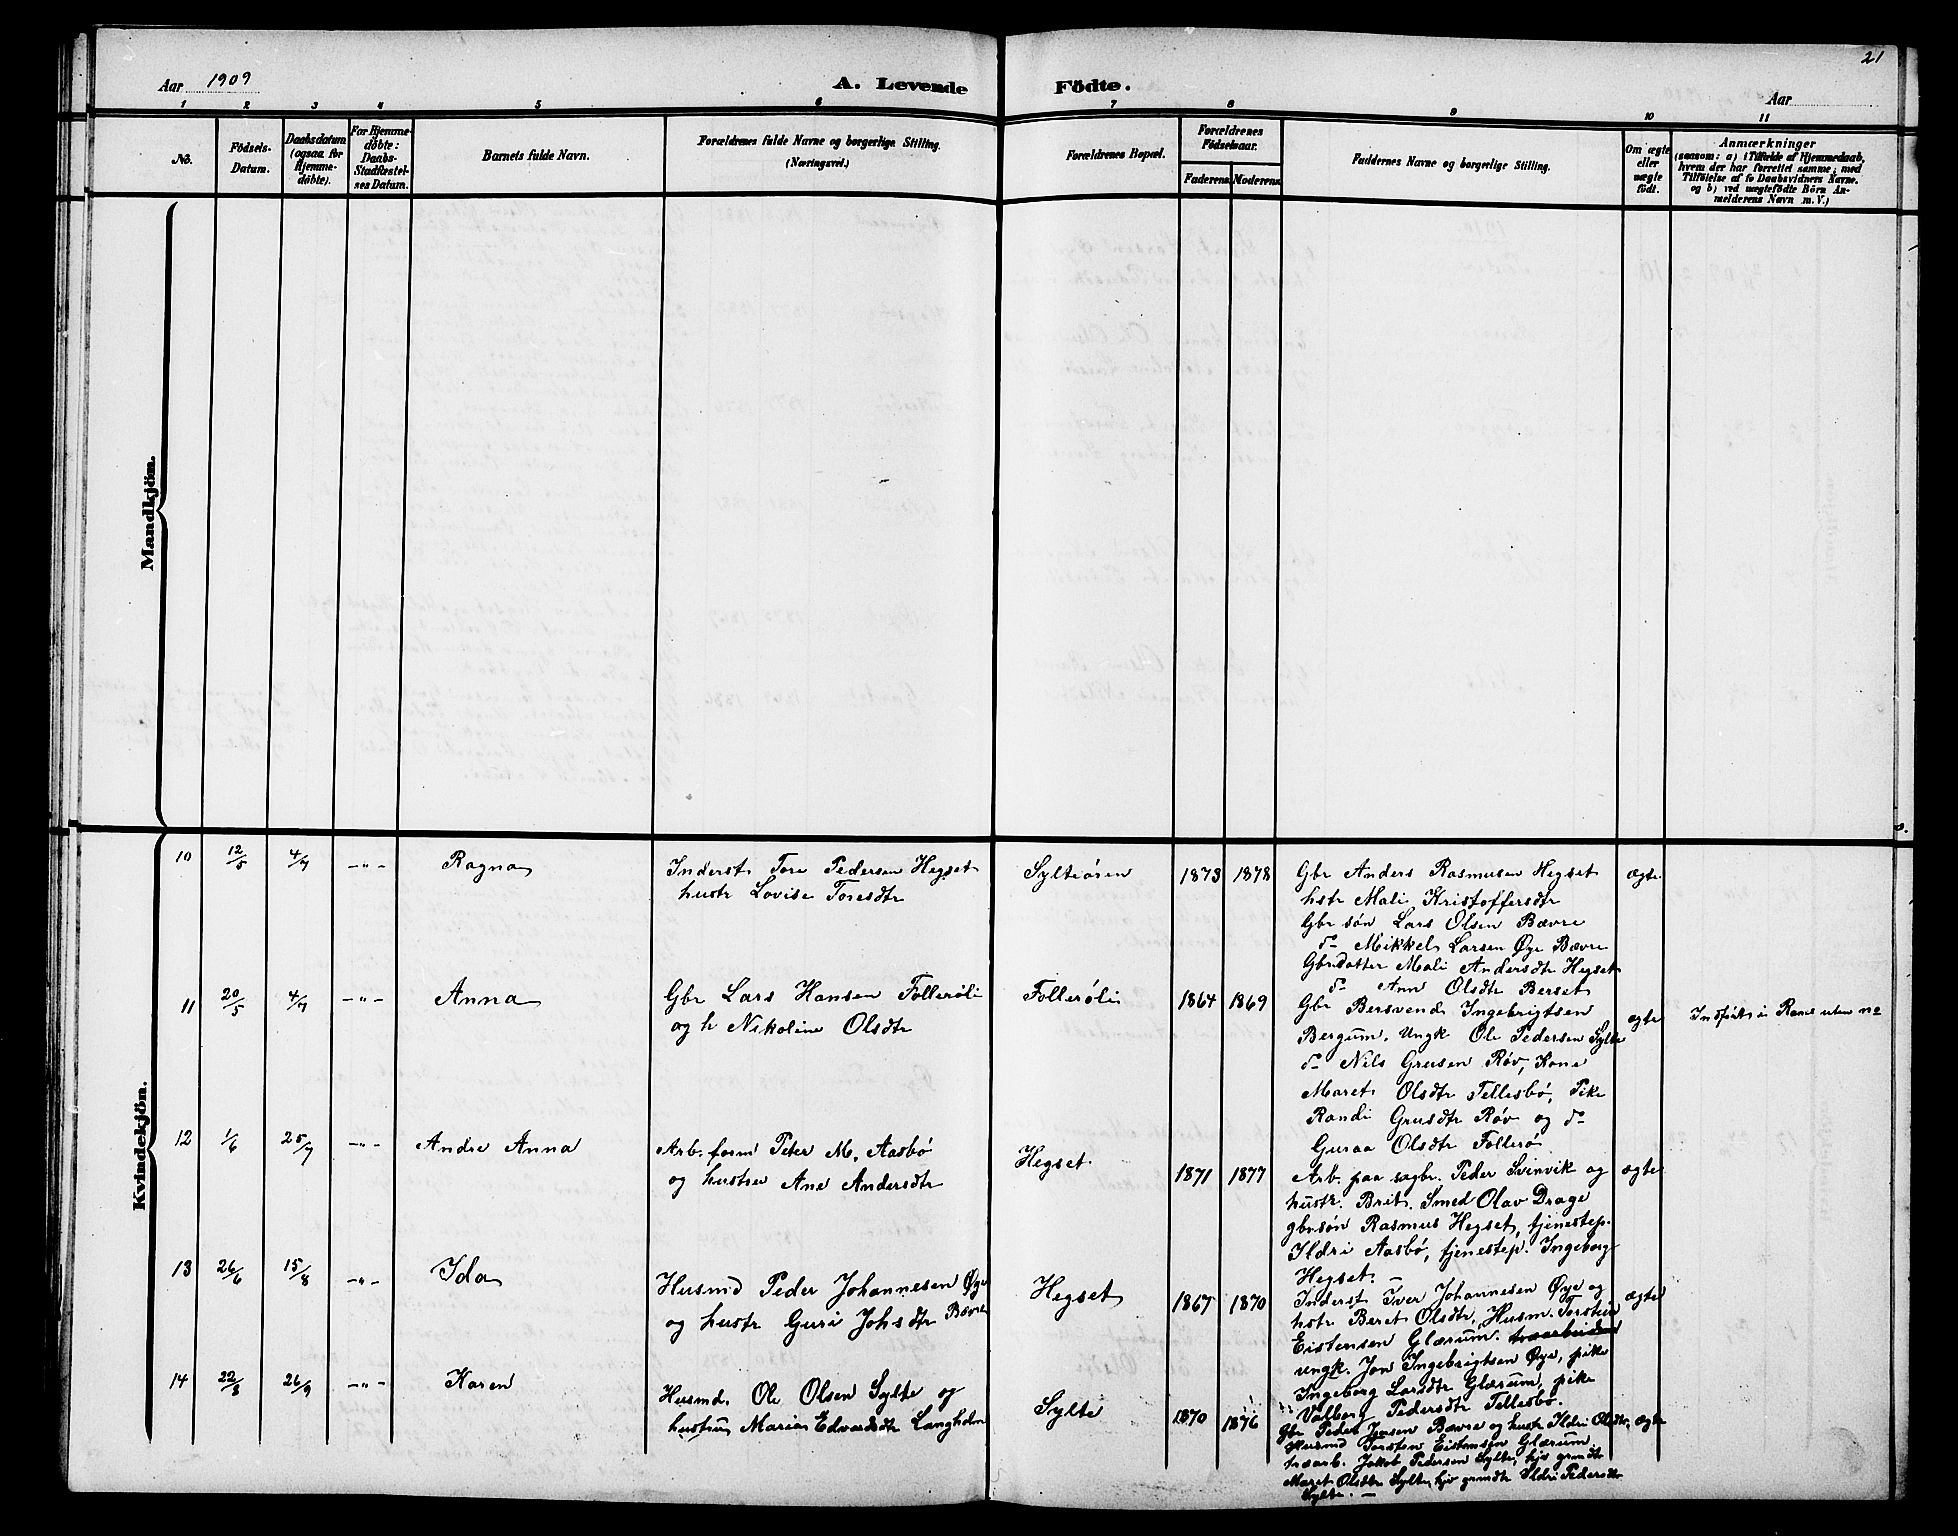 21
Aar 1909
A. Levende
Födte.
Aar
1 2 3 4 5 6 7 8 9 10 11
No.
Födsels-
Datum.
Daabsdatum
(ogsaa for
Hjemme-
döbte).
For Hjemme-
döbte:
Daabs-
Stadfæstel-
ses Datum.
Barnets fulde Navn.
Forældrenes fulde Navne og borgerlige Stilling.
(Næringsvei.)
Forældrenes Bopæl.
Forældrenes
Födselsaar.
Faderens. Moderens.
Faddernes Navne og borgerlige Stilling.
Om ægte
eller
uægte
födt.
Anmærkninger
(saasom: a) i Tilfælde af Hjemmedaab,
hvem der har forrettet samme, med
Tilföielse af to Daabsvidners Navne,
og b) ved uægtefödte Börn An-
melderens Navn m. V.)
Mandkjön.
Kvindekjön.
10 12/5 4/7 -"- Ragna
Inderst Tore Pedersen Hegset
hustr Lovise Toresdtr
Syltøren 1873 1878
Gbr Anders Rasmusen Hegset
hstr Mali Kristoffersdtr
Gbr søn Lars Olsen Bævre
do Mikkel Larsen Øye Bævre
Gbrdatter Mali Andersdtr Hegset
do Ann Olsdtr Berset
ægte
11 20/5 4/7 -"- Anna
Gbr Lars Hansen Follerøli
og h Nikoline Olsdtr
Follerøli 1864 1869
Gbr Bersvend Ingebrigtsen
Bergum, Ungk Ole Pedersen Sylte
do Nils Grusen Røv, Kone
Maret Olsdtr Tellesbø, Pike
Randi Grusdtr Røv og do
Guraa Olsdtr Follerø
ægte
Indført i Ranes uten no
12 1/6 25/7 -"- Andre Anna
Arb. form Peter M. Aasbø
og hustru Ane Andersdtr
Hegset 1871 1877
Arb. paa sagbr. Peder Svinvik og
hustr. Brit. Smed Olav Drage
gbrsøn Rasmus Hegset, tjenestep.
Ildri Aasbø, tjenestep. Ingeborg
Hegset. –
ægte
13 26/6 15/8 -"- Ida
Husmd Peder Johannesen Øye
og hustr Guri Johsdtr Bævre
Hegset 1867 1870
Inderst Iver Johannesen Øye og
hstr Beret Olsdtr, Husm. Torstein
Eistensen Glærum. træarbeider
ungk. Jon Ingebrigtsen Øye, pike
Ingeborg Larsdtr Glærum, pike
Valborg Pedersdtr Tellesbø.
ægte
14 22/8 26/9 -"- Karen
Husmd. Ole Olsen Sylte og
hustru Maria Edvardsdtr Langholm
Sylte 1870 1876
Gbr Peder Jensen Bævre og hustr Ildri Olsdtr,
Husmd Torsten Eistensen Glærum,
træarb. Jakob Pedersen Sylte, hjv grmdtr
Maret Olsdtr Sylte, hjv grmdtr Ildri Pedersdtr
Sylte. –
ægte